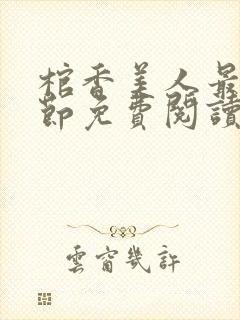 棺香美人最
節免費閱讀
雲窗幾許